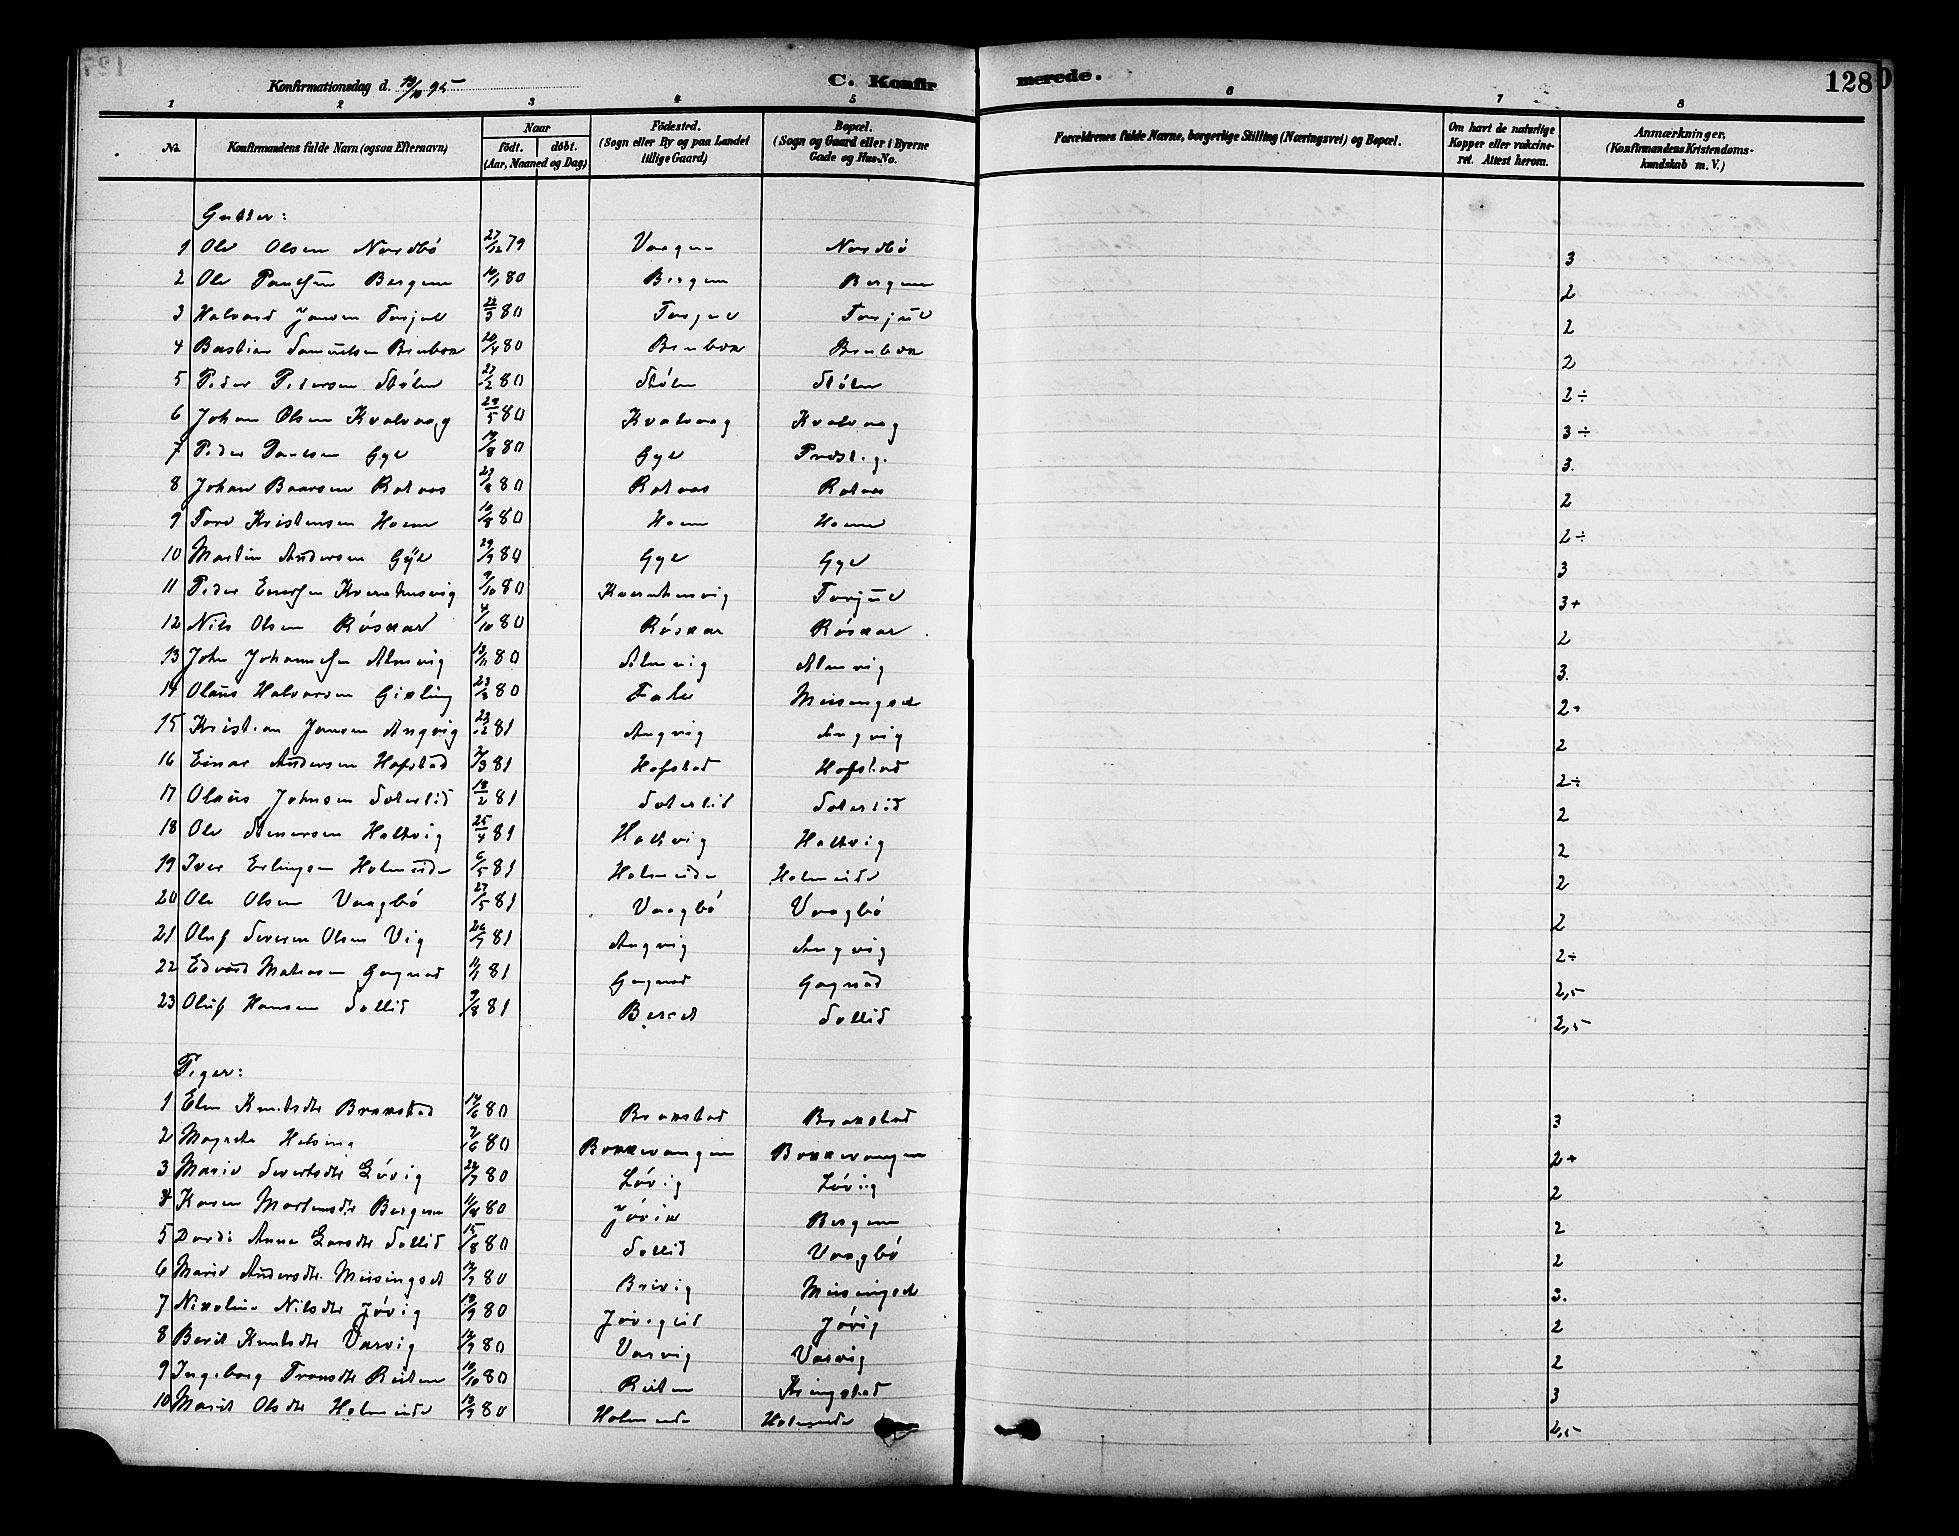 Konfirmationsdag d. 95
C. Konfirmerede.
128
1 2 3 4 5 6 7 8
No.
Konfirmandens fulde Navn (ogsaa Efternavn)
Naar
födt. döbt.
(Aar, Maaned og Dag)
Födested.
(Sogn eller By og paa Landet tillige Gaard)
Bopæl.
(Sogn og Gaard eller i Byerne Gade og Hus-No.
Forældrenes fulde Navne, borgerlige Stilling (Næringsvei) og Bopæl.
Om havt de naturlige Kopper eller vaksineret. Attest herom.
Anmærkninger.
(Konfirmandens Kristendomskundskab m. V.)
Gutter:
1 Ole Olsen Nordbö 27/12 79 Nordbö 3
2 Ole Bergem 80 Bergem Bergem 2
3 Halvard Jonsen Torjul 80 Torjul Torjul 2
4 Bastian Samuelsen 80 2
5 Peder Pedersen Stölen 27/2 80 Stölen Stölen 2÷
6 Johan Olsen Kvalvaag 29/5 80 Kvalvaag Kvalvaag 3÷
7 Peder Gyl 80 Gyl Præstg. 3.
8 Johan Baarsen Rotaas 80 Rotaas Rotaas 2
9 Tore Kristensen Hoem 80 Hoem Hoem 2÷
10 Martin Andersen Gÿl 29/9 80 Gyl Gyl 3
11 Peder Kvernhusvig 9/10 80 Kvernhusvig Torjul 3+
12 Nils Olsen Röskar 4/10 80 Röskar Röskar 2
13 John Johannesen Almvig 80 Almvig Almvig 3.
14 Olaus Halvorsen Gixling 80 Meisingset 2+
15 Kristian Jonsen Angvig 81 Angvig Angvig 2
16 Einar Andersen Hofstad 81 Hofstad Hofstad 2÷
17 Olaus Johnsen Soterlid 81 Soterlid Soterlid 2
18 Ole Stenersen Haltvig 25/4 81 Haltvig Haltvig 2
19 Iver Erlingsen Holmeide 6/5 81 Holmeide Holmeide 2
20 Ole Olsen Vaagbö 27/5 81 Vaagbö Vaagbö 2
21 Oluf Severin Olsen Vig 81 Angvig Angvig 2÷
22 Edvard Gagnad 81 Gagnad Gagnad 2,5
23 Oluf Hansen Sollid 9/8 81 Sollid 2,5
Piger:
1 Elen Knutsdtr Brakstad 80 Brakstad Brakstad 3
2 Magreta 80 Bokkevangen Bokkevangen 2+
3 Marit Sivertsdtr Lövig 80 Lövig Lövig 2
4 Karen Martensdtr Bergem 80 Bergem 2
5 Dordi Anna Larsdtr Sollid 15/8 80 Sollid Vaagbö 2
6 Marit Andersdtr. Meisingset 80 Meisingset 3.
7 Nikoline Nilsdtr Jövig 80 Jövig 2
8 Berit Knutsdtr Varvig 80 Varvig Varvig 2
9 Ingeborg Reiten 80 Reiten Ringstad 3
10 Marit Olsdtr Holmeide 80 Holmeide Holmeide 2,5